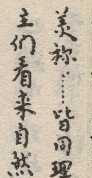 美称……皆同理
主们看来自然